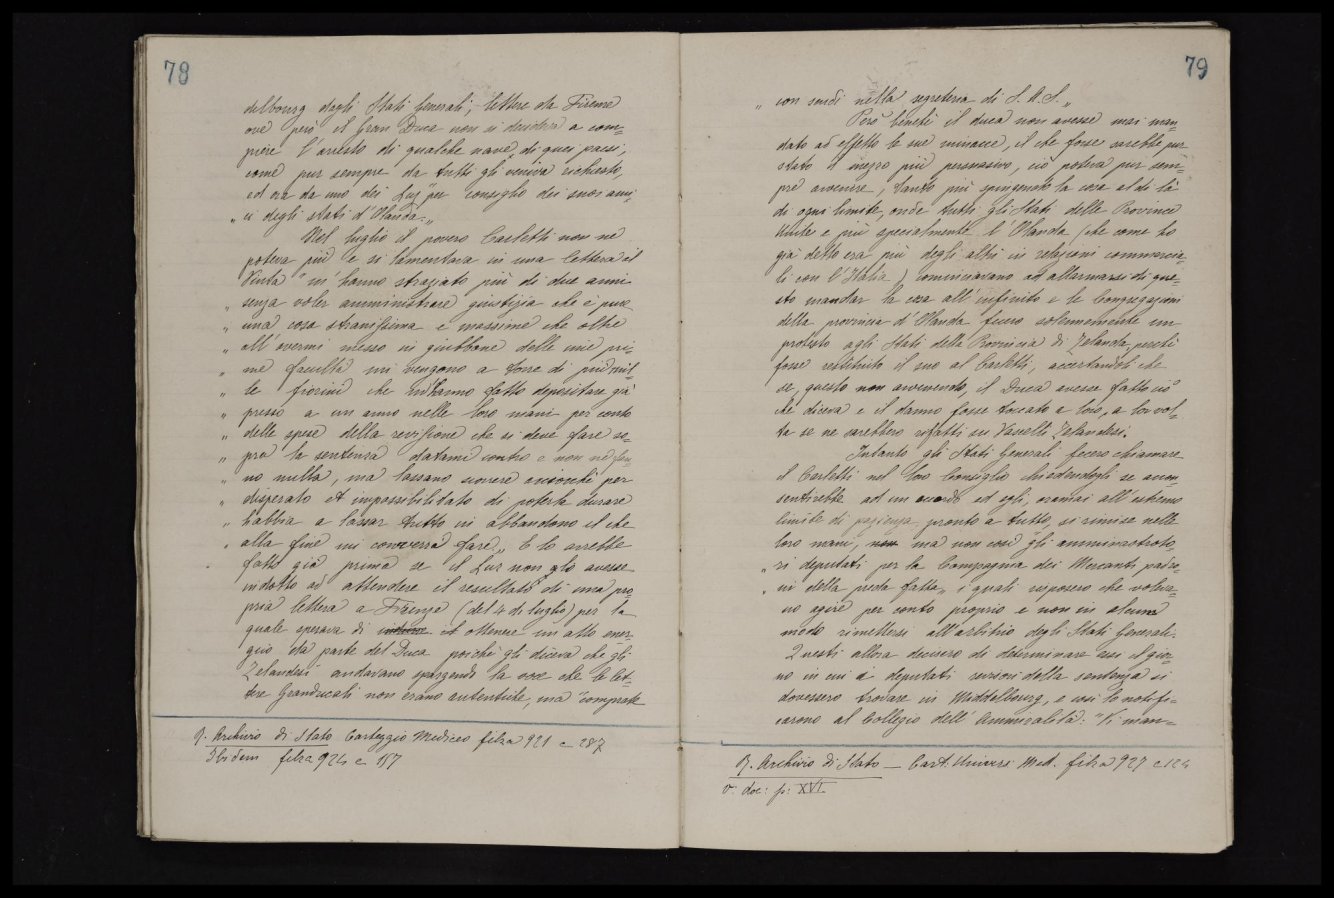 78
delbourg dagli Stati Generali; lettere da Firenze
ove però il Gran Duca non si decideva a com=
piere l'arresto di qualche nave di quei paesi,
come pur sempre da tutti gli veniva richiesto,
ed ora da uno dei Luz "per consiglio dei suoi ami=
" ci degli stati d'Olanda."
Nel luglio il povero Carletti non ne
poteva più e si lamentava in una lettera al
Vinta "m'hanno straziato più di due anni
" senza voler amministrare giustizia che è pure
" una cosa stranissima e massime che oltre
" all'avermi messo in giubbone delle mie pri=
" me facultà mi vengono a torre di più mil=
" le fiorini che m'hanno fatto depositare già
" presso a un anno nelle loro mani per conto
" delle spese della revisione che si deve fare so=
" pra la sentenza datami contro e non ne fan=
" no nulla, ma lassano scorrere acciochè per
" disperato et impossibilitato di poterla durare
" habbia a lassar tutto in abbandono il che
" alla fine mi converrà fare." E lo avrebbe
fatto già prima se il Luz non glo avesse
indotto ad attendere il resultato di una pro
pria lettera a Firenze (del 4 di luglio) per la
quale sperava di ottenere un atto ener=
gico da parte del Duca poichè gli diceva che gli
Zelandesi andavano spargendo la voce che le let=
tere Granducali non erano autentiche, ma "comprate
1. Archivio di Stato Carteggio Mediceo filza 921 c 287
Ibidem filza 924 c 187
79
" con scudi nella segreteria di S. A. S."
Però benchè il duca non avesse mai man=
dato ad effetto le sue minacce, il che forse sarebbe pur
stato il mezzo più persuasivo, ciò poteva pur sem=
pre avvenire, tanto più spingendo la cosa al di là
di ogni limite, onde tutti gli Stati delle Provincie
Unite e più specialmente l'Olanda (che come ho
già detto era più degli altri in relazioni commercia=
li con l'Italia) cominciavano ad allarmarsi di que=
sto mandar la cosa all'infinito e le Congregazioni
della provincia d'Olanda fecero solennemente un
protesto agli Stati della Provincia di Zelanda, perchè
fosse restituito il suo al Carletti, accertandoli che
se, questo non avvenendo, il Duca avesse fatto ciò
che diceva e il danno fosse toccato a loro, a lor vol=
ta se ne sarebbero rifatti sui Vasselli Zelandesi.
Intanto gli Stati Generali fecero chiamare
il Carletti nel loro Consiglio chiedendogli se accon=
sentirebbe ad un accordo ed egli, oramai all'estremo
limite di pazienza, pronto a tutto, si rimise nelle
loro mani, non ma non così gli amministrato=
" ri deputati per la Compagnia dei Mercanti padro=
" ni della preda fatta," i quali risposero che voleva=
no agire per conto proprio e non in alcun
modo rimettersi all'arbitrio degli Stati Generali.
Questi allora decisero di determinare essi il gior=
no in cui i deputati revisori della sentenza si
dovessero trovare in Middelbourg, e così lo notifi=
carono al Collegio dell'Ammiralità: "Vi man=
1. Archivio di Stato — Cart. Univers. Med. filza 927 c 124
v. doc: p: XVI.